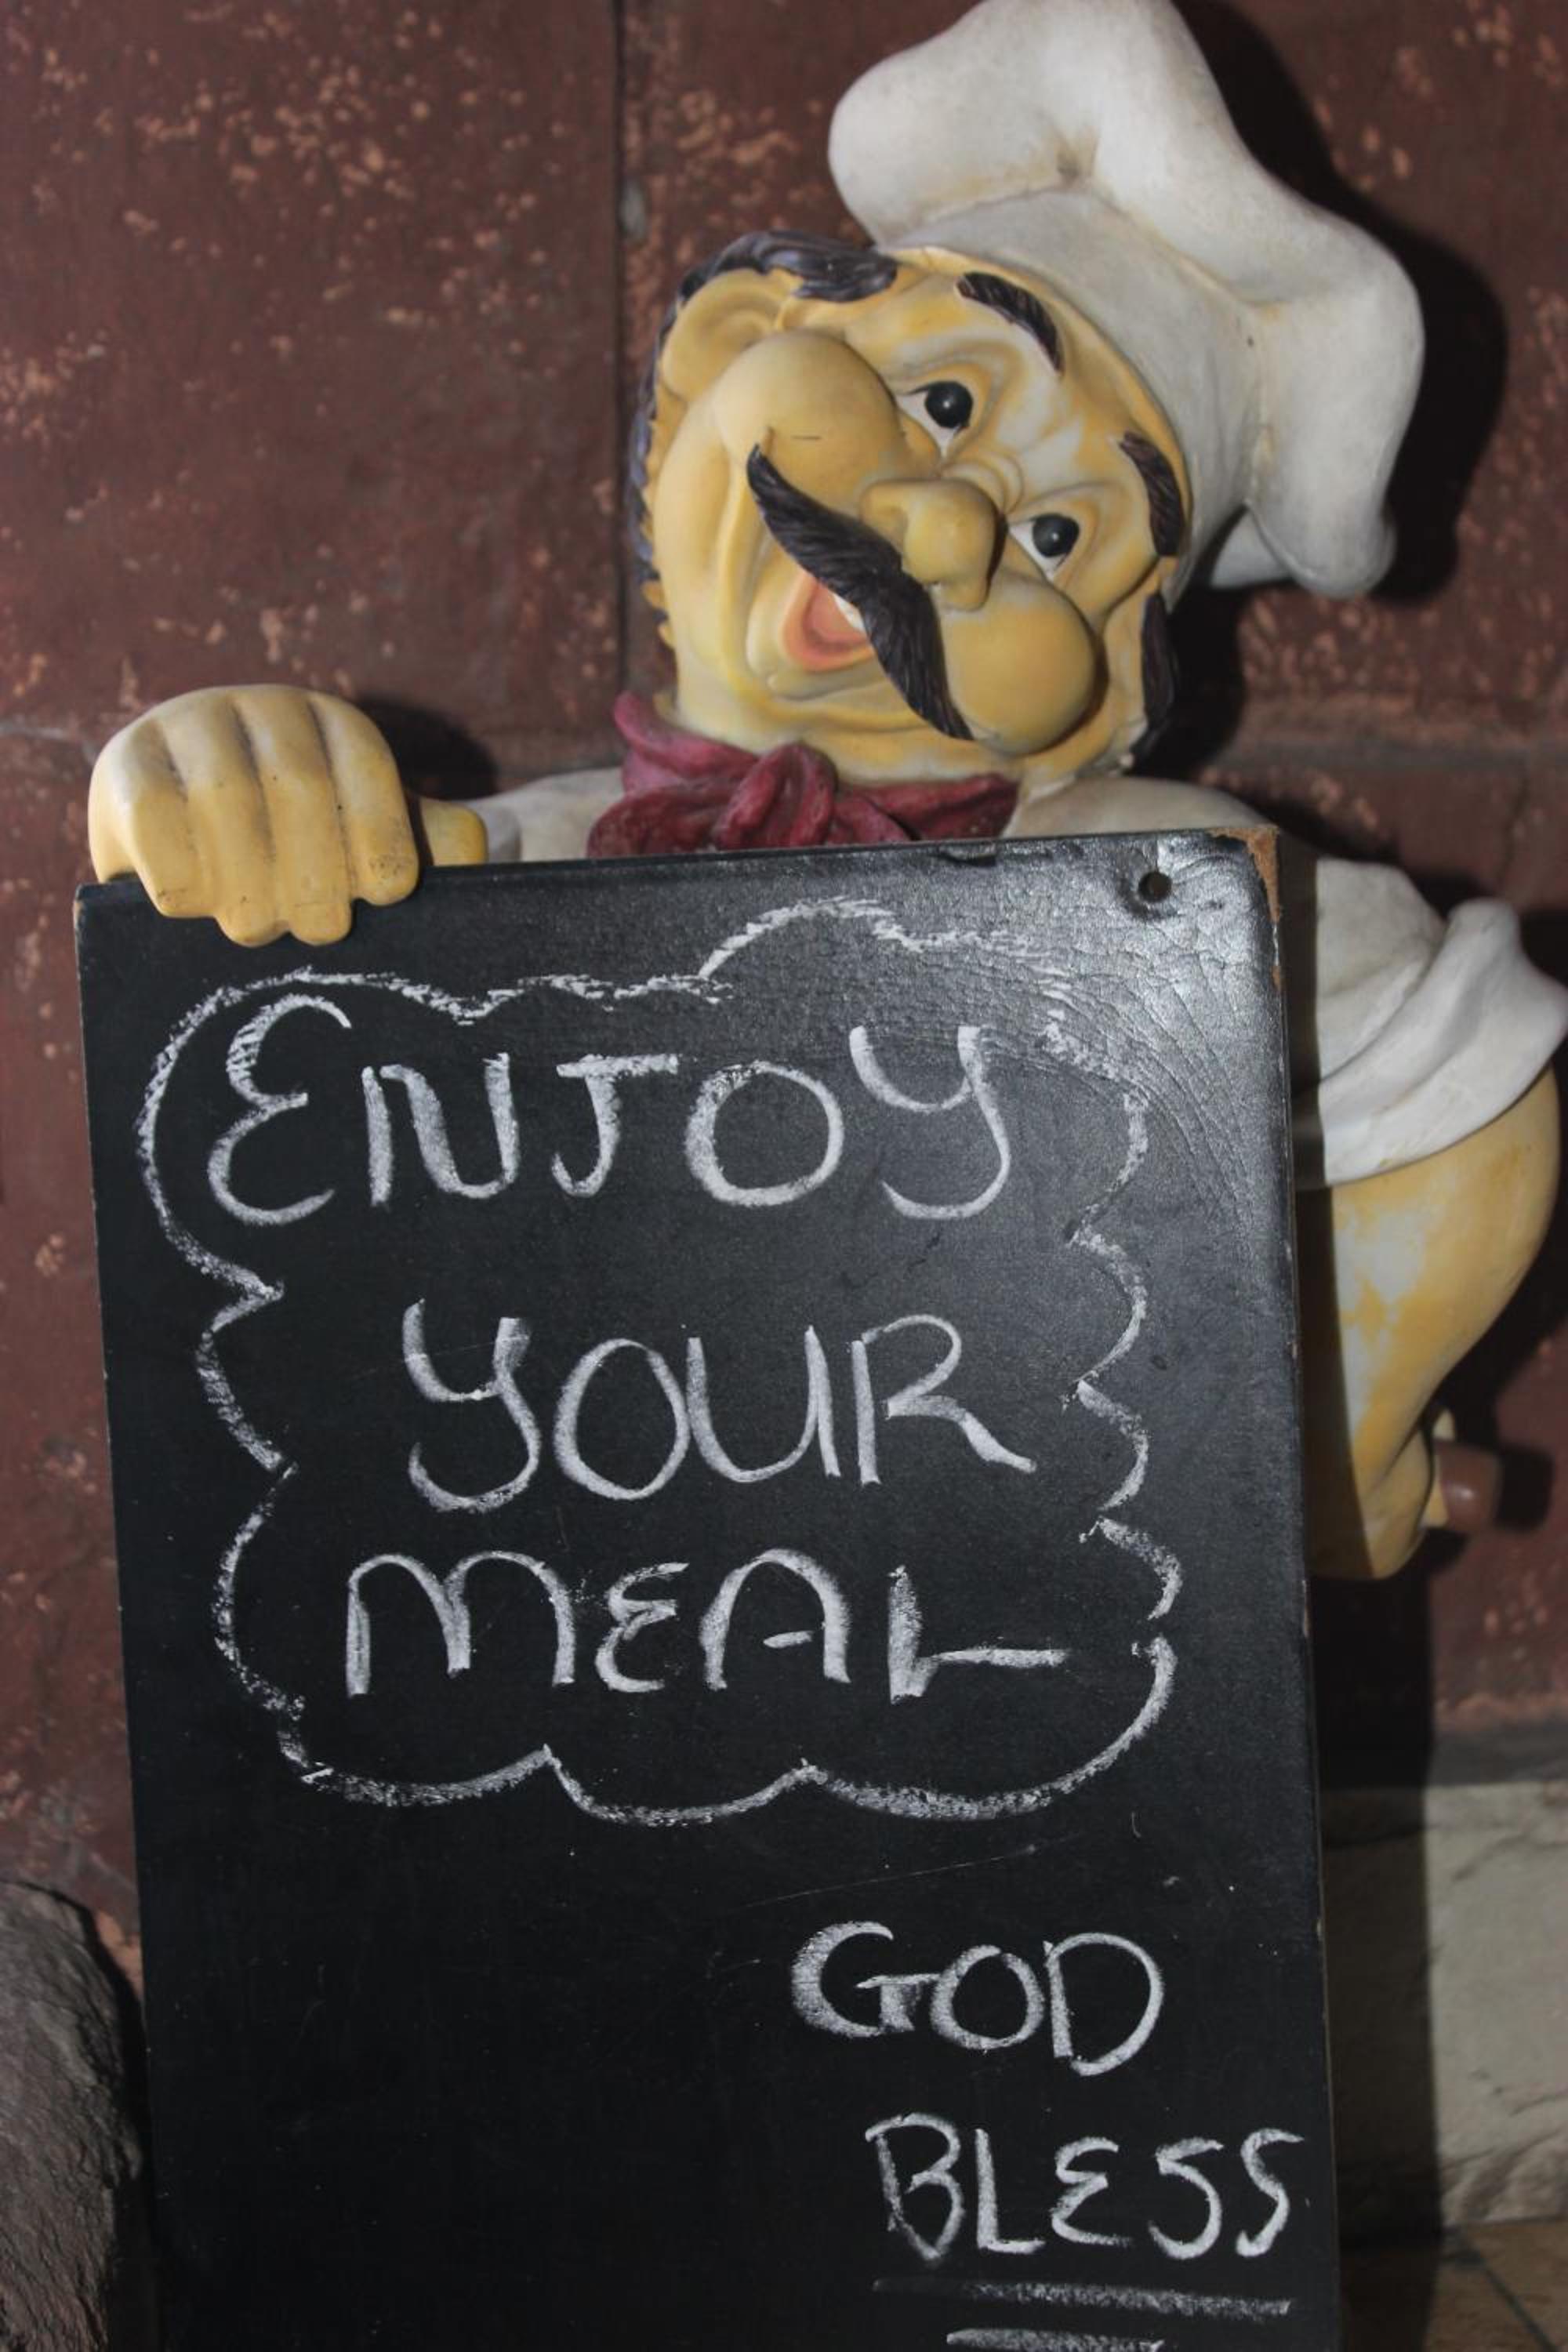 ENJOY
YOUR
MEAL
GOD
BLESS